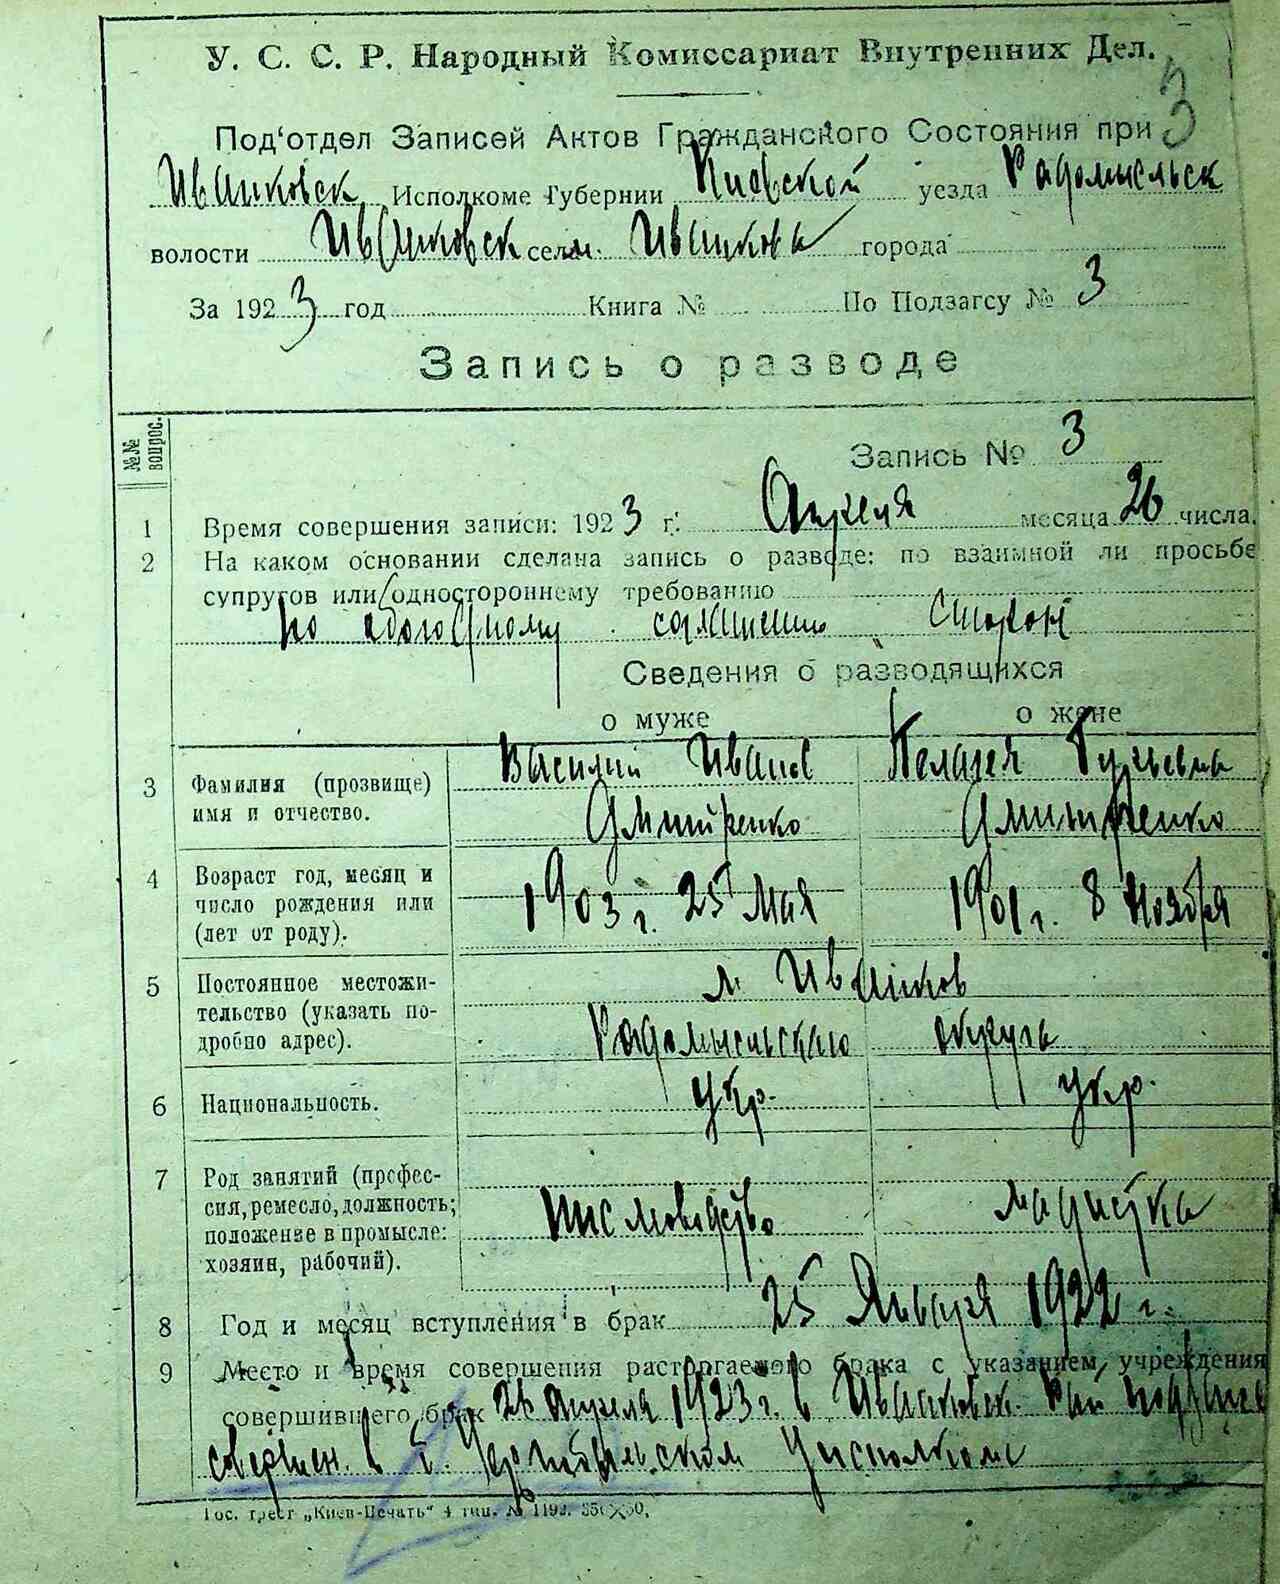 У. С. С. Р. Народный Комиссариат Внутренних Дел.
3
Под‘отдел Записей Актов Гражданского Состояния при
Иванковск Исполкоме Губернии Киевской уезда Радомысльск
волости Иванковск села м. Иванков города
За 1923 год Книга № По Подзагсу № 3
Запись о разводе
№№ вопрос.
Запись № 3
1 Время совершения записи: 1923 г. Апреля месяца 26 числа.
2 На каком основании сделана запись о разводе: по взаимной ли просьбе
супругов или одностороннему требованию
по обоюдному соглашению сторон
Сведения о разводящихся
о муже о жене
3 Фамилия (прозвище) имя и отчество.
Василий Иванов Пелагея Гурьевна
Дмитренко Дмитренко
4 Возраст год, месяц и
число рождения или
(лет от роду).
1903 г. 25 Мая 1901 г. 8 Ноября
5 Постоянное местожи-
тельство (указать по-
дробно адрес).
м. Иванков
Радомысльскаго округа
6 Национальность. Укр. Укр.
7 Род занятий (профес-
сия, ремесло, должность;
положение в промысле:
хозяин, рабочий).
письмоводство модистка
8 Год и месяц вступления в брак 25 Января 1922 г.
9 Место и время совершения расторгаемого брака с указанием учреждения
совершившего брак 26 Апреля 1923 г. в Иванковск. Рай подзагсе
совершен. в г. Чернобыльском Уисполкоме
Гос. трест „Киев-Печать“ 4 тип. № 1192.